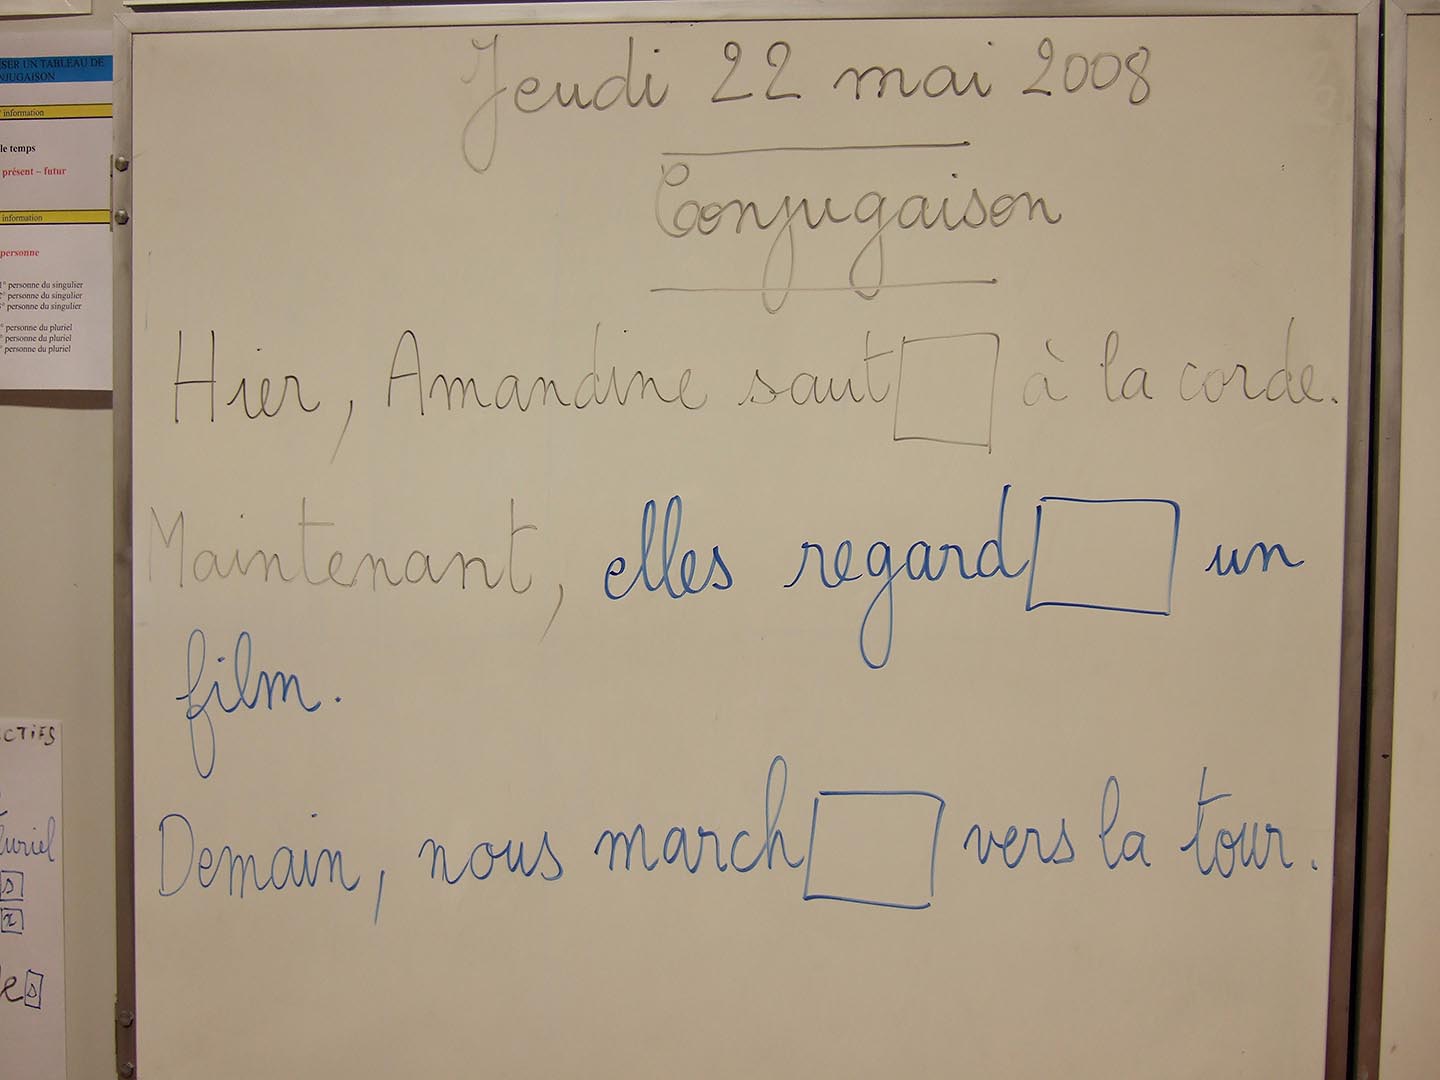 SER UN TABLEAU DE
NJUGAISON
information
le temps
présent – futur
information
personne
1° personne du singulier
2° personne du singulier
3° personne du singulier
° personne du pluriel
° personne du pluriel
° personne du pluriel
CTIFS
luriel
s
x
es
Jeudi 22 mai 2008
Conjugaison
Hier, Amandine saut à la corde.
Maintenant, elles regard un
film.
Demain, nous march vers la tour.